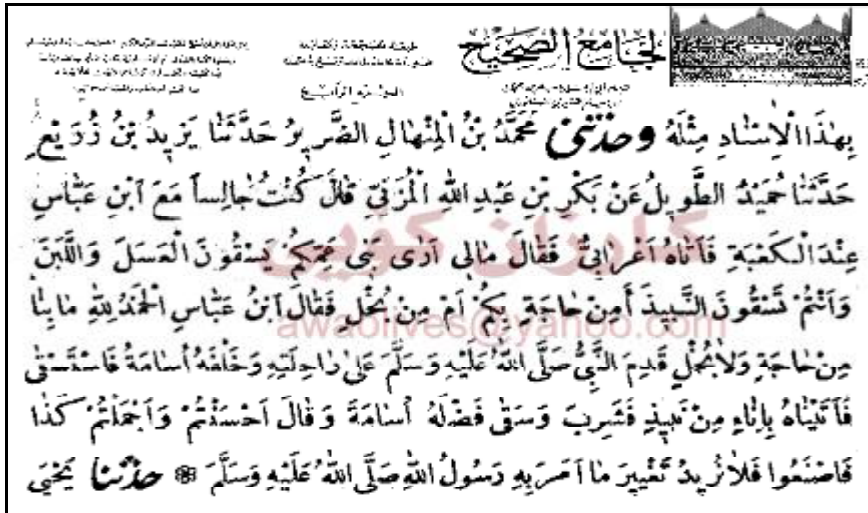 الجامع الصحيح
الجزء الرابع
بِهٰذَا الْاِسْنَادِ مِثْلَهُ وحدثنى مُحَمَّدُ بْنُ الْمِنْهَالِ الضَّرِيرُ حَدَّثَنَا يَزِيدُ بْنُ زُرَيْعٍ
حَدَّثَنَا حُمَيْدٌ الطَّوِيلُ عَنْ بَكْرِ بْنِ عَبْدِ اللهِ الْمُزَنِيِّ قَالَ كُنْتُ جَالِساً مَعَ ابْنِ عَبَّاسٍ
عِنْدَ الْكَعْبَةِ فَاَتَاهُ اَعْرَابِىٌّ فَقَالَ مَالِى اَرٰى بَنِى عَمِّكُمْ يَسْقُونَ الْعَسَلَ وَاللَّبَنَ
وَاَنْتُمْ تَسْقُونَ النَّبِيذَ أَمِنْ حَاجَةٍ بِكُمْ اَمْ مِنْ بُخْلٍ فَقَالَ ابْنُ عَبَّاسٍ الْحَمْدُ لِلّٰهِ مَا بِنَا
مِنْ حَاجَةٍ وَلاٰ بُخْلٍ قَدِمَ النَّبِىُّ صَلَّى اللهُ عَلَيْهِ وَسَلَّمَ عَلىٰ رَاحِلَتِهِ وَخَلْفَهُ اُسَامَةُ فَاسْتَسْقٰى
فَاَتَيْنَاهُ بِاِنَاءٍ مِنْ نَبِيذٍ فَشَرِبَ وَسَقٰى فَضْلَهُ اُسَامَةَ وَقَالَ اَحْسَنْتُمْ وَاَجْمَلْتُمْ كَذَا
فَاصْنَعُوا فَلاٰ نُرِيدُ تَغْيِيرَ مَا اَمَرَ بِهِ رَسُولُ اللهِ صَلَّى اللهُ عَلَيْهِ وَسَلَّمَ ❁ حدثنا يَحْيَى
كاروان كويى
awaolives@yahoo.com